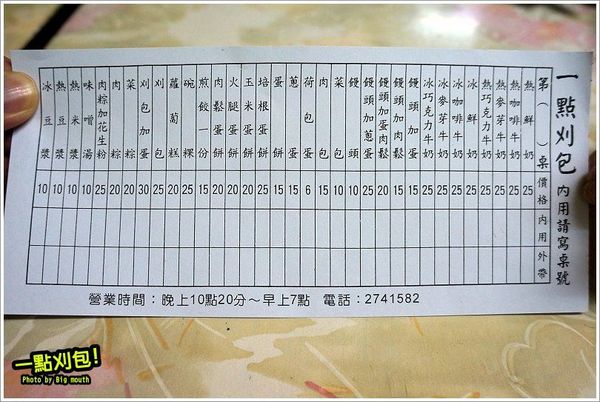 一點刈包 內用請寫桌號
第( )桌 價格 內用 外帶
熱鮮奶 25
熱咖啡牛奶 25
熱麥芽牛奶 25
熱巧克力牛奶 25
冰鮮奶 25
冰咖啡牛奶 25
冰麥芽牛奶 25
冰巧克力牛奶 25
饅頭加蛋 15
饅頭加肉鬆 20
饅頭加蛋肉鬆 25
饅頭加蔥蛋 20
饅頭 10
菜包 10
肉包 15
荷包蛋 6
蔥蛋 15
蛋餅 15
培根蛋餅 25
玉米蛋餅 20
火腿蛋餅 20
肉鬆蛋餅 20
煎餃一份 15
碗粿 25
蘿蔔糕 20
刈包 25
刈包加蛋 30
菜粽 20
肉粽 20
肉粽加花生粉 25
味噌湯 10
熱米漿 10
熱豆漿 10
冰豆漿 10
營業時間：晚上10點20分～早上7點 電話：2741582
一點刈包!
Photo by Big mouth